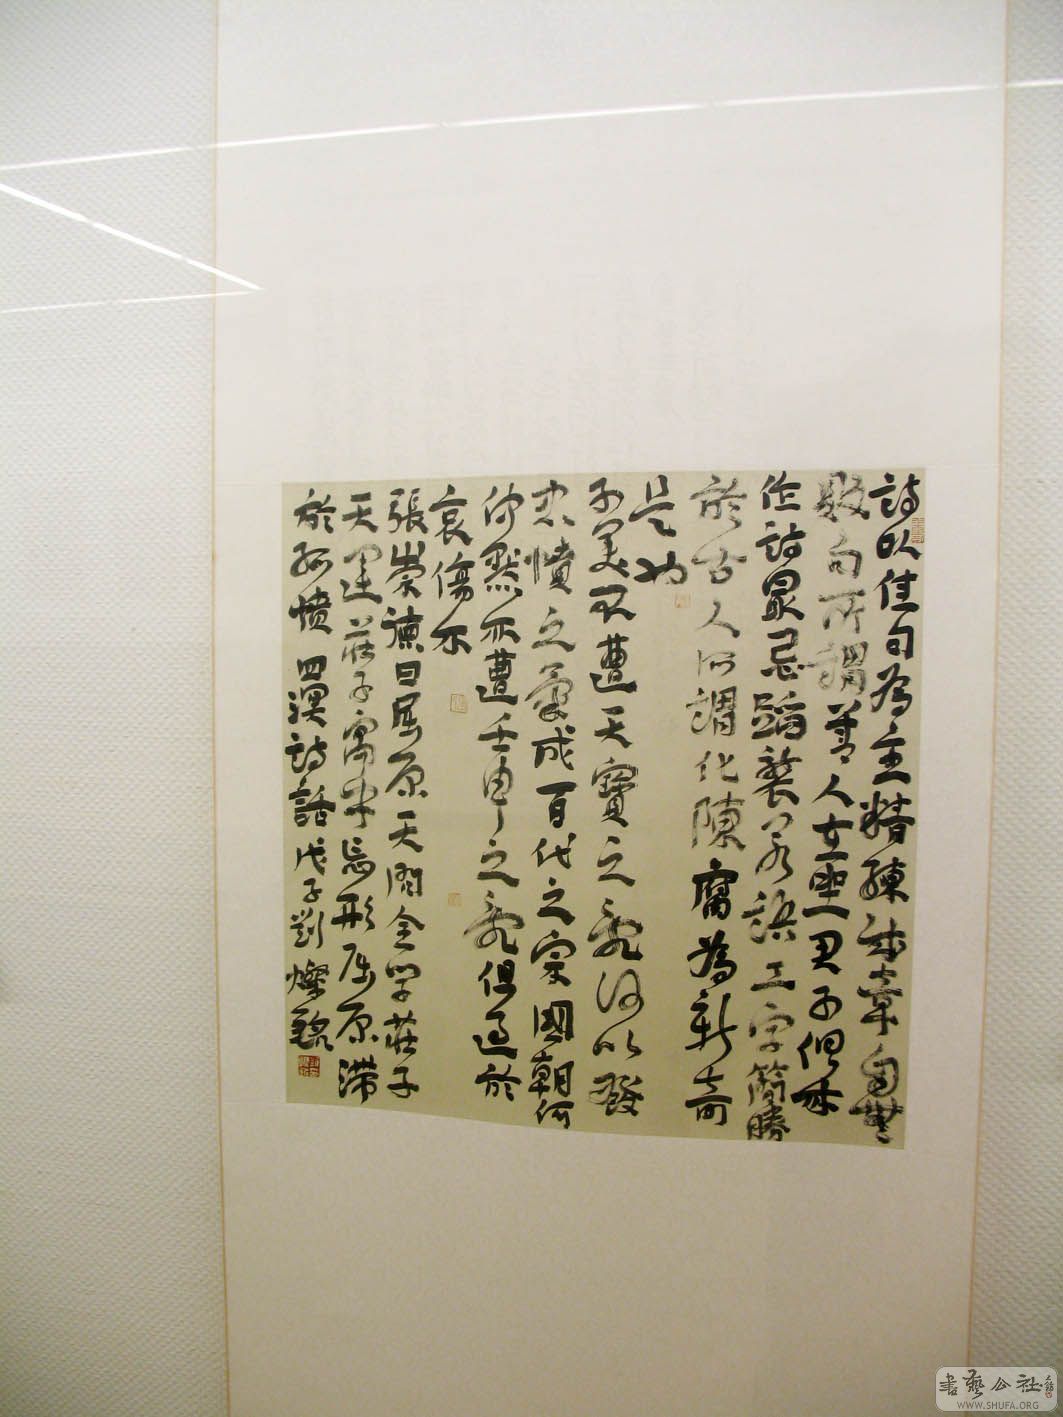 詩以佳句為主精練成章自無
敗句所謂善人在坐君子俱來
作詩最忌蹈襲若語工字簡勝
於古人所謂化陳腐為新奇
是也
子美不遭天寶之亂何以發
忠憤之氣成百代之宗國朝何
仲默亦遭壬申之亂但過於
哀傷爾
張崇讓曰屈原天問全學莊子
天運莊子寓乎忘形屈原滯
於孤憤 四溟詩話 戊子劉燦銘
書藝公社
WWW.SHUFA.ORG